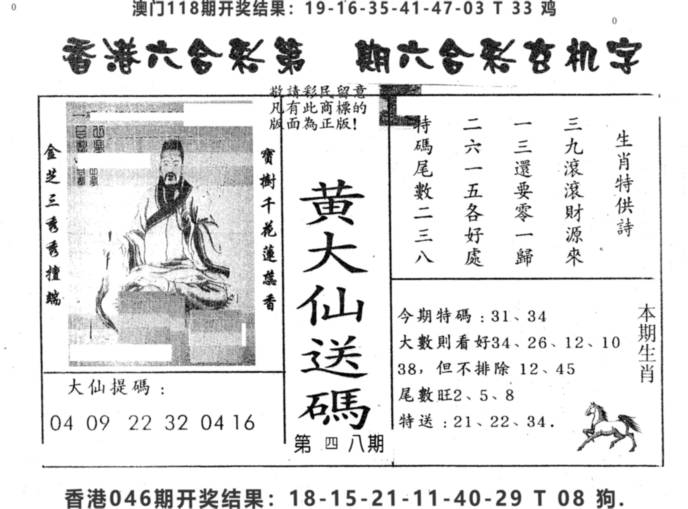 澳门118期开奖结果：19-16-35-41-47-03 T 33 鸡
香港六合彩第　期六合彩玄机字
敬請彩民留意
凡有此商標的
版面為正版！
金芝三秀秀擅端
寶樹千花蓮蕊香
黃大仙送碼
第四八期
大仙提碼：
04 09 22 32 04 16
生肖特供詩
三九滾滾財源來
一三還要零一歸
二六一五各好處
特碼尾數二三八
今期特碼：31、34
大數則看好34、26、12、10
38，但不排除 12、45
尾數旺2、5、8
特送：21、22、34.
本期生肖
香港046期开奖结果：18-15-21-11-40-29 T 08 狗.